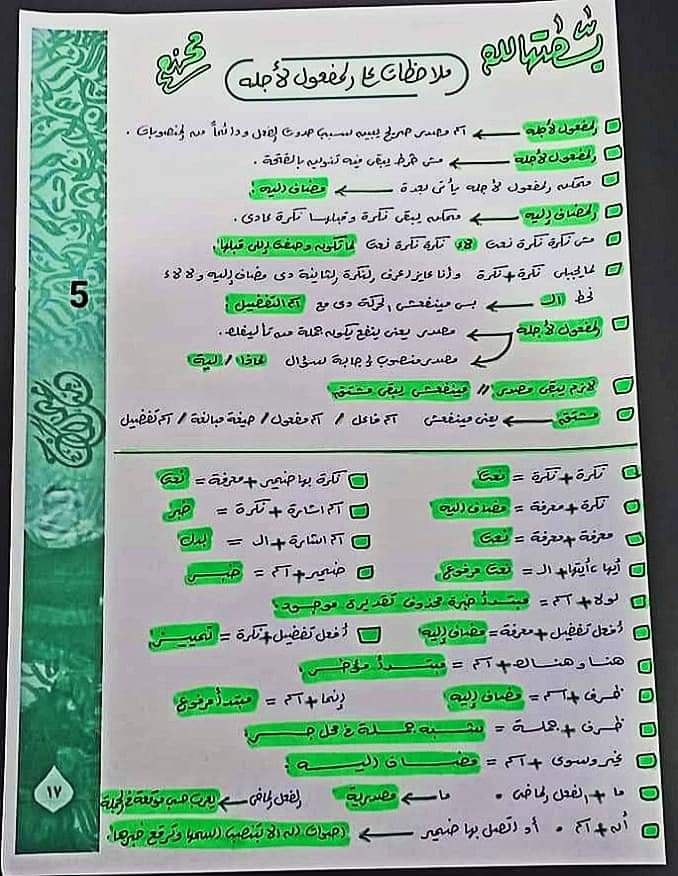 بسمتها لله
ملاحظات على المفعول لأجله
المفعول لأجله ← اسم مصدر صريح يبين لسبب حدوث الفعل ودائماً من المنصوبات .
المفعول لأجله ← مش شرط يبقى فيه تنوين بالفتحة .
ممكن المفعول لأجله يأتي بعده ← مضاف إليه .
المضاف إليه ← ممكن يبقى نكرة وقبلها نكرة عادي .
مش نكرة نكرة نعت لاء نكرة نكرة نعت لما تكون وصفت اللي قبلها .
لما يجيلي نكرة + نكرة وأنا عايز أعرف النكرة الثانية دي مضاف إليه ولا لاء
نحط الـ ← بس مينفعش الحركة دي مع اسم التفضيل .
المفعول لأجله ← مصدر يعني ينفع يكون جملة من تأليفك .
مصدر منصوب لإجابة سؤال لماذا / ليه
لازم يبقى مصدر // مينفعش يبقى مشتق
مشتق ← يعني مينفعش اسم فاعل / اسم مفعول / صيغة مبالغة / اسم تفضيل
5
نكرة + نكرة = نعت
نكرة بها ضمير + معرفة = نعت
نكرة + معرفة = مضاف إليه
اسم اشارة + نكرة = خبر
معرفة + معرفة = نعت
اسم اشارة + الـ = بدل
أيها ، أيتها + الـ = نعت مرفوع
ضمير + اسم = خبر
لولا + اسم = مبتدأ خبره محذوف تقديره موجود .
أفعل تفضيل + معرفة = مضاف إليه
أفعل تفضيل + نكرة = تمييز
هنا وهناك + اسم = مبتدأ مؤخر
ظرف + اسم = مضاف إليه
إنما + اسم = مبتدأ مرفوع
ظرف + جملة = شبه جملة في محل جر
غير وسوى + اسم = مضاف إليه .
ما + الفعل الماضي . ما ← مصدرية
الفعل الماضي ← يعرب حسب موقعه في الجملة
أن + اسم . أو اتصل بها ضمير ← اخوات إن لا تنصب اسمها وترفع خبرها .
١٧